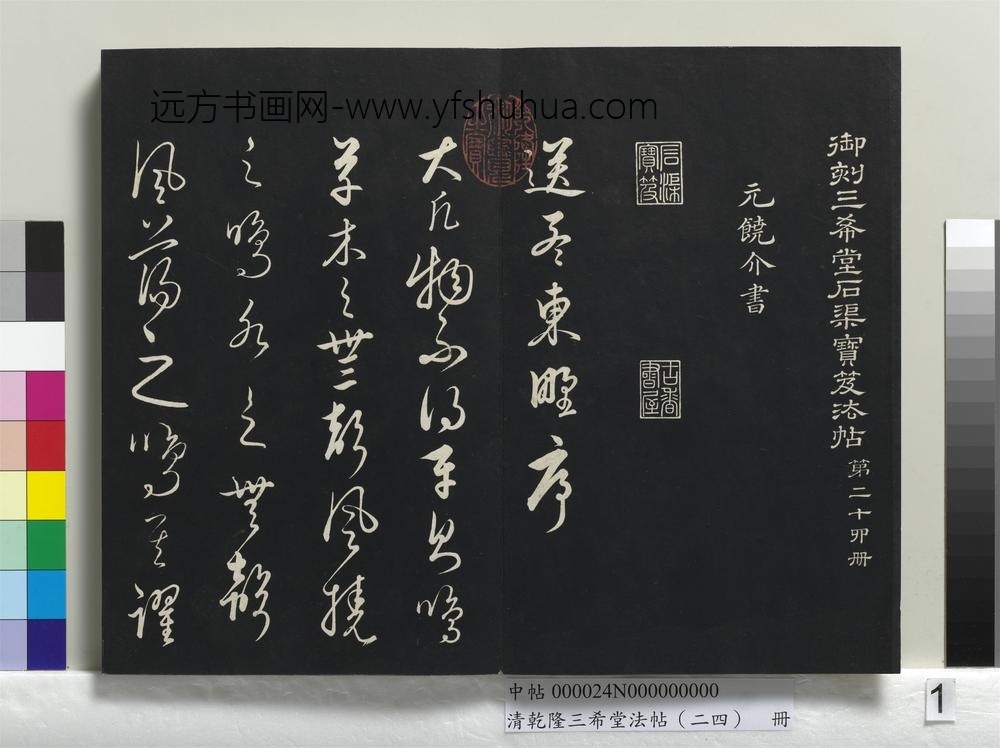 远方书画网-www.yfshuhua.com
御刻三希堂石渠寶笈法帖 第二十四冊
元饒介書
石渠寶笈
古香書屋
送孟東野序
大凡物不得平則鳴
草木之無聲風撓
之鳴水之無聲
風蕩之鳴其躍
中帖 000024N000000000
清乾隆三希堂法帖（二四） 冊
1